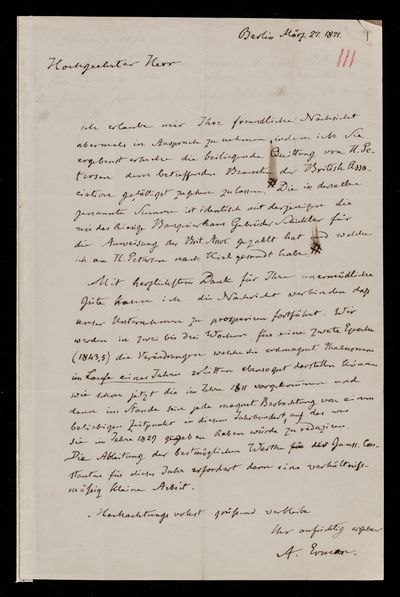 Berlin März. 27. 1871.
1
III
Hochgeehrter Herr
ich erlaube mir Ihre freundliche Nachsicht
abermals in Anspruch zu nehmen, indem ich Sie
ergebenst ersuche die beiliegende Quittung von H. Pe-
tersen dem betreffenden Beamten der British Asso-
ciation gefälligst zugehen zu lassen. Die in derselben
genannte Summe ist identisch mit derjenigen die
mir das hiesige Banquierhaus Gebrüder Schickler für
die Anweisung der Brit. Assoc. gezahlt hat und welche
ich an H. Petersen nach Kiel gesandt habe.
Mit herzlichstem Dank für Ihre unermüdliche
Güte kann ich die Nachricht verbinden daß
unser Unternehmen zu prosperiren fortfährt. Wir
werden in zwei bis drei Wochen, für eine zweite Epoche
die Veränderungen welche die erdmagnet. Phaenomene
im Laufe eines Jahres erlitten ebensogut darstellen können
wie schon jetzt die im Jahre vorgekommenen und
dann im Stande sein jede magnet. Beobachtung von einem
beliebigen Zeitpunkt in diesem Jahrhundert, auf den was
sie im Jahre 1829 gegeben haben würde zu reduziren.
Die Ableitung der bestmöglichen Werthe für die Gauss. Con-
stanten für dieses Jahr erfordert dann eine verhältniß-
mäßig kleine Arbeit.
Hochachtungsvollst grüßend verbleibe
Ihr aufrichtig ergebener
A. Erman.